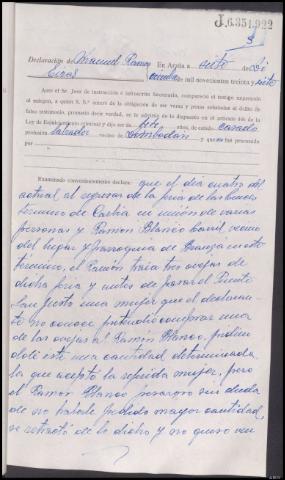 J.6351,922
5
Declaración de Manuel Ramos
En Arzúa a siete de
de mil novecientos treinta y siete
Ante el Sr. Juez de instrucción e infrascrito Secretario, compareció el testigo expresado
al margen, a quien S. S.ª enteró de la obligación de ser veraz y penas señaladas al delito de
falso testimonio, prometió decir verdad, en lo
Ley de Enjuiciamiento criminal y dijo ser de años, de estado casado
profesión labrador vecino de Dombodán y que no fue procesado
por
Examinado convenientemente declara: que el día cuatro del
actual, al regresar de la feria de las
término de en unión de varias
personas y Ramón Blanco vecino
del lugar y parroquia de Branzá
término, el Ramón traía tres ovejas de
dicha feria y antes de pasar el Puente
San una mujer que el declarante
no conoce pretendió comprar una
de las ovejas al Ramón Blanco, pidiendole
este una cantidad determinada,
la que aceptó la referida mujer, pero
el Ramón Blanco pesaroso sin duda
de no haberle pedido mayor cantidad,
se retractó de lo dicho y no quiso ven